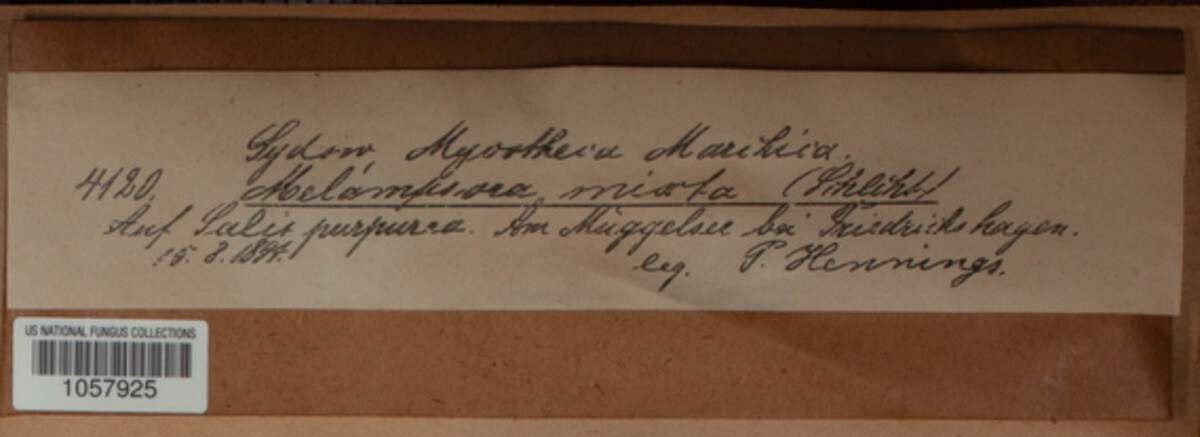 Sydow, Mycotheca Marchica.
4120. Melampsora mixta (Schlcht.)
Auf Salix purpurea. Am Müggelsee bei Friedrichshagen.
15. 8. 1894. leg. P. Hennings.
US NATIONAL FUNGUS COLLECTIONS
1057925